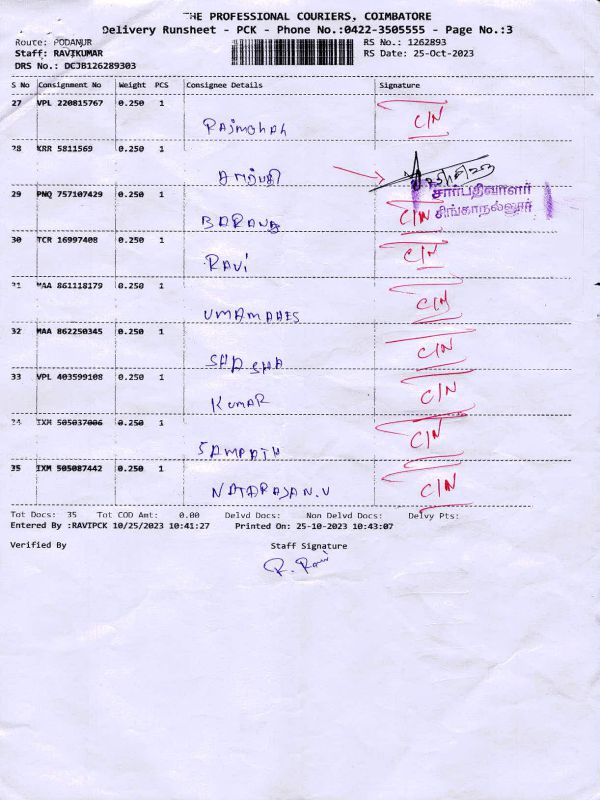 THE PROFESSIONAL COURIERS, COIMBATORE
Delivery Runsheet - PCK - Phone No.:0422-3505555 - Page No.:3
Route: PODANUR RS No.: 1262893
Staff: RAVIKUMAR RS Date: 25-Oct-2023
DRS No.: DCJB126289303
S No Consignment No Weight PCS Consignee Details Signature
27 VPL 220815767 0.250 1
Rajmohan C/N
28 KRR 5811569 0.250 1
சார்பதி 25/10/23
29 PNQ 757107429 0.250 1 சார்பதிவாளர்
BARANB C/N சிங்காநல்லூர்
30 TCR 16997408 0.250 1
Ravi C/N
31 MAA 861118179 0.250 1
UMAMAAES C/N
32 MAA 862250345 0.250 1
SHASHA C/N
33 VPL 403599108 0.250 1
Kumar C/N
34 IXM 505037006 0.250 1
SAMPATH C/N
35 IXM 505087442 0.250 1
NATARAJAN.V C/N
Tot Docs: 35 Tot COD Amt: 0.00 Delvd Docs: Non Delvd Docs: Delvy Pts:
Entered By :RAVIPCK 10/25/2023 10:41:27 Printed On: 25-10-2023 10:43:07
Verified By Staff Signature
R. Ravi